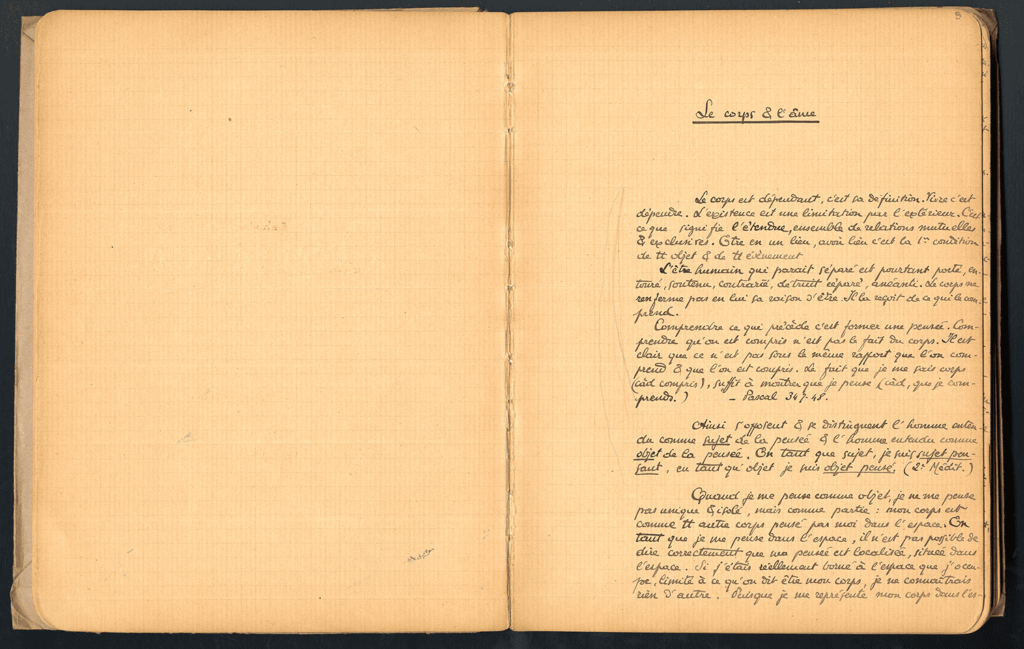 3
Le corps & l'âme
Le corps est dépendant, c'est sa définition. Vivre c'est
dépendre. L'existence est une limitation par l'extérieur. C'est
ce que signifie l'étendue, ensemble de relations mutuelles
& exclusives. Etre en un lieu, avoir lieu c'est la 1re condition
de tt objet & de tt évènement
L'être humain qui parait séparé est pourtant porté, en-
touré, soutenu, contrarié, détruit réparé, anéanti. Le corps ne
renferme pas en lui sa raison d'être. Il la reçoit de ce qui le com-
prend.
Comprendre ce qui précède c'est former une pensée. Com-
prendre qu'on est compris n'est pas le fait du corps. Il est
clair que ce n'est pas sous le même rapport que l'on com-
prend & que l'on est compris. Le fait que je me sais corps
(càd compris), suffit à montrer que je pense (càd, que je com-
prends.) – Pascal 347-48.
Ainsi s'opposent & se distinguent l'homme enten-
du comme sujet de la pensée & l'homme entendu comme
objet de la pensée. En tant que sujet, je suis sujet pen-
sant, en tant qu'objet je suis objet pensé. (2e Médit.)
Quand je me pense comme objet, je ne me pense
pas unique & isolé, mais comme partie : mon corps est
comme tt autre corps pensé par moi dans l'espace. En
tant que je me pense dans l'espace, il n'est pas possible de
dire correctement que ma pensée est localisée, située dans
l'espace. Si j'étais réellement borné à l'espace que j'occu-
pe, limité à ce qu'on dit être mon corps, je ne connaîtrais
rien d'autre. Puisque je me représente mon corps dans l'es-